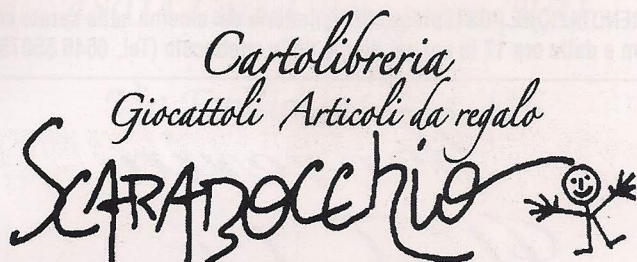 Cartolibreria
Giocattoli Articoli da regalo
SCARABOCCHIO